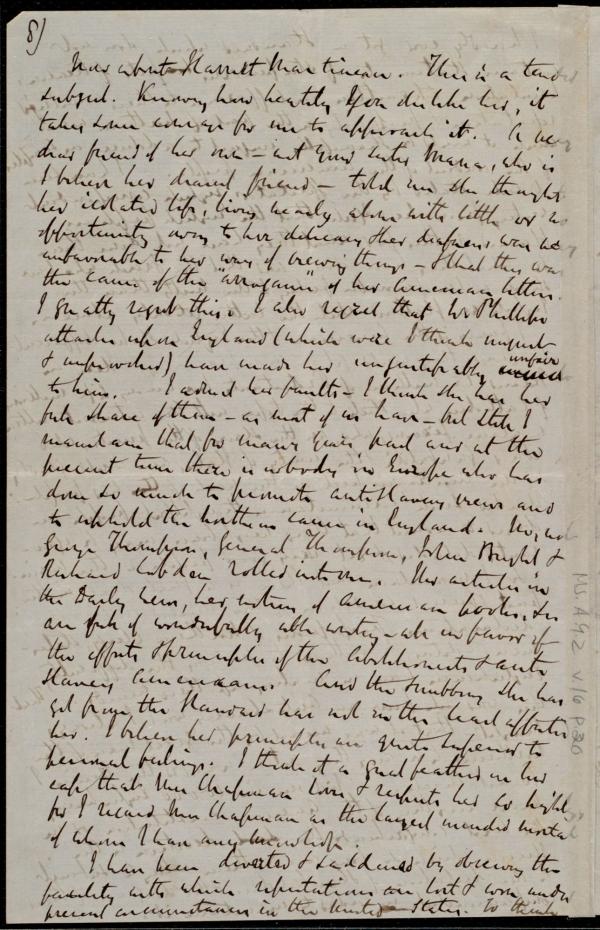 8)
Now about Harriet Martineau. This is a tender
subject. Knowing how heartily you dislike her, it
takes some courage for me to approach it. A very
dear friend of her own - not your sister Maria, who is
I believe her dearest friend - told me she thought
her isolated life, living nearly alone with little or no
opportunity owing to her delicacy & her deafness were
unfavourable to her way of viewing things - & that this was
the cause of the "arrogance" of her American letters.
I greatly regret this. I also regret that W. Phillips's
attacks upon England (which were I think unjust
& unprovoked) have made her unjustifiably unfair
to him. I admit her faults - I think she has her
full share of them - as most of us have - but still I
maintain that for many years past and at the
present time there is nobody in Europe who has
done so much to promote antislavery views and
to uphold the Northern cause in England. No, not
George Thompson, General Thompson, John Bright &
Richard Cobden rolled into one. Her articles in
the Daily News, her notices of American books, &c
are full of wonderfully able writing - all in favor of
the efforts & principles of the Abolitionists & anti
slavery Americans. And the snubbing she has
got from the Standard has not in the least affected
her. I believe her principles are quite superior to
personal feelings. I think it a great feather in her
cap that Mrs Chapman loves & respects her so highly
for I regard Mrs Chapman as the largest minded mortal
of whom I have any knowledge.
I have been diverted & saddened by observing the
facility with which reputations are lost & won under
present circumstances in the United States. To think
MS.A.9.2 v.16 p.30